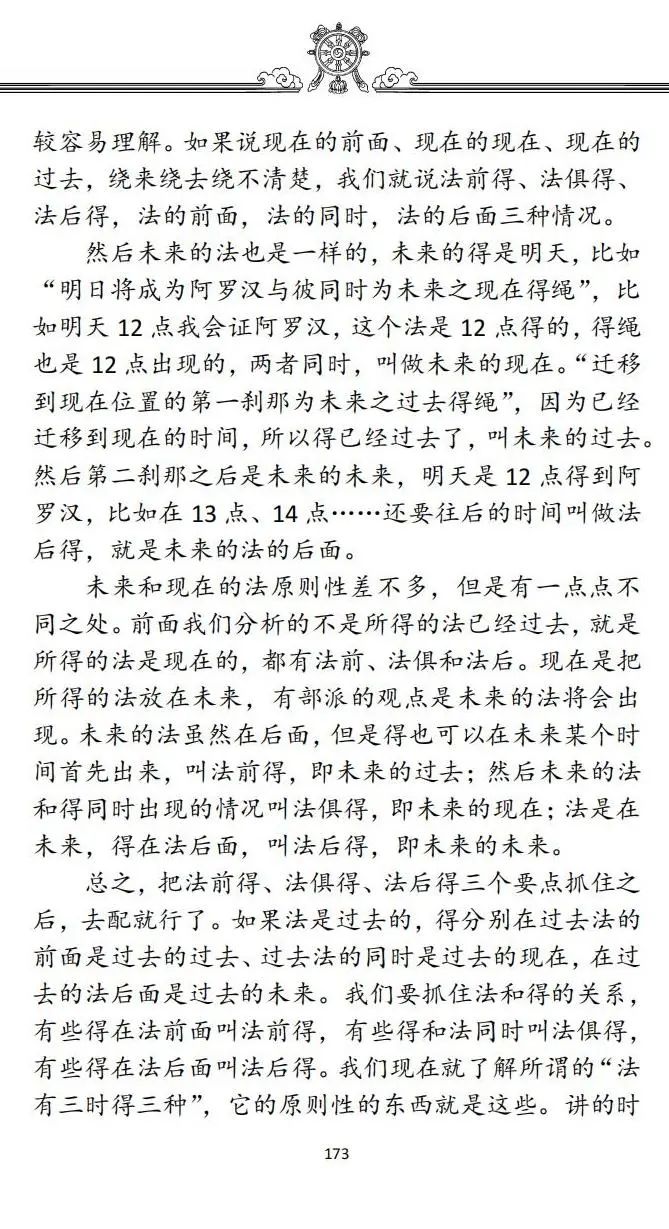 较容易理解。如果说现在的前面、现在的现在、现在的
过去，绕来绕去绕不清楚，我们就说法前得、法俱得、
法后得，法的前面，法的同时，法的后面三种情况。
然后未来的法也是一样的，未来的得是明天，比如
“明日将成为阿罗汉与彼同时为未来之现在得绳”，比
如明天 12 点我会证阿罗汉，这个法是 12 点得的，得绳
也是 12 点出现的，两者同时，叫做未来的现在。“迁移
到现在位置的第一刹那为未来之过去得绳”，因为已经
迁移到现在的时间，所以得已经过去了，叫未来的过去。
然后第二刹那之后是未来的未来，明天是 12 点得到阿
罗汉，比如在 13 点、14 点……还要往后的时间叫做法
后得，就是未来的法的后面。
未来和现在的法原则性差不多，但是有一点点不
同之处。前面我们分析的不是所得的法已经过去，就是
所得的法是现在的，都有法前、法俱和法后。现在是把
所得的法放在未来，有部派的观点是未来的法将会出
现。未来的法虽然在后面，但是得也可以在未来某个时
间首先出来，叫法前得，即未来的过去；然后未来的法
和得同时出现的情况叫法俱得，即未来的现在；法是在
未来，得在法后面，叫法后得，即未来的未来。
总之，把法前得、法俱得、法后得三个要点抓住之
后，去配就行了。如果法是过去的，得分别在过去法的
前面是过去的过去、过去法的同时是过去的现在，在过
去的法后面是过去的未来。我们要抓住法和得的关系，
有些得在法前面叫法前得，有些得和法同时叫法俱得，
有些得在法后面叫法后得。我们现在就了解所谓的“法
有三时得三种”，它的原则性的东西就是这些。讲的时
173